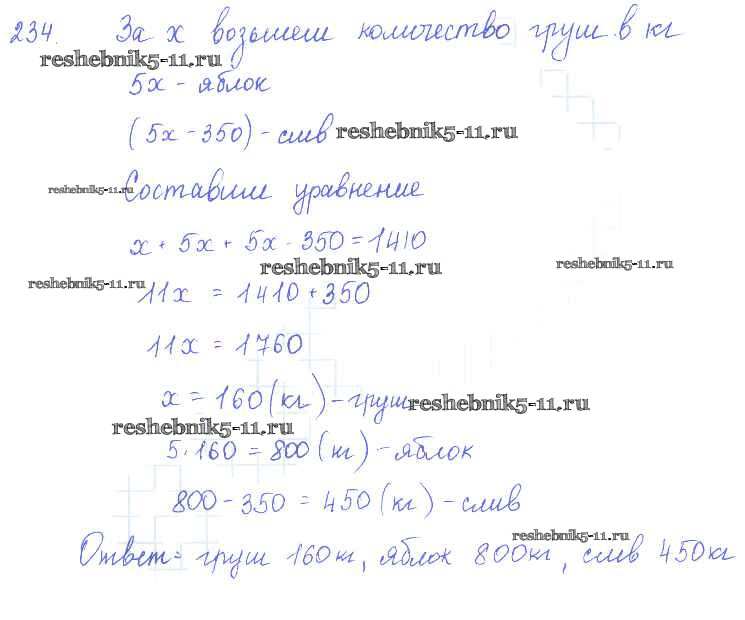 234. За x возьмем количество груш в кг
reshebnik5-11.ru
5x - яблок
(5x - 350) - слив reshebnik5-11.ru
reshebnik5-11.ru Составим уравнение
x + 5x + 5x - 350 = 1410
reshebnik5-11.ru reshebnik5-11.ru
reshebnik5-11.ru 11x = 1410 + 350
11x = 1760
x = 160 (кг) - груш reshebnik5-11.ru
reshebnik5-11.ru
5 · 160 = 800 (кг) - яблок
800 - 350 = 450 (кг) - слив
reshebnik5-11.ru
Ответ: груш 160 кг, яблок 800 кг, слив 450 кг